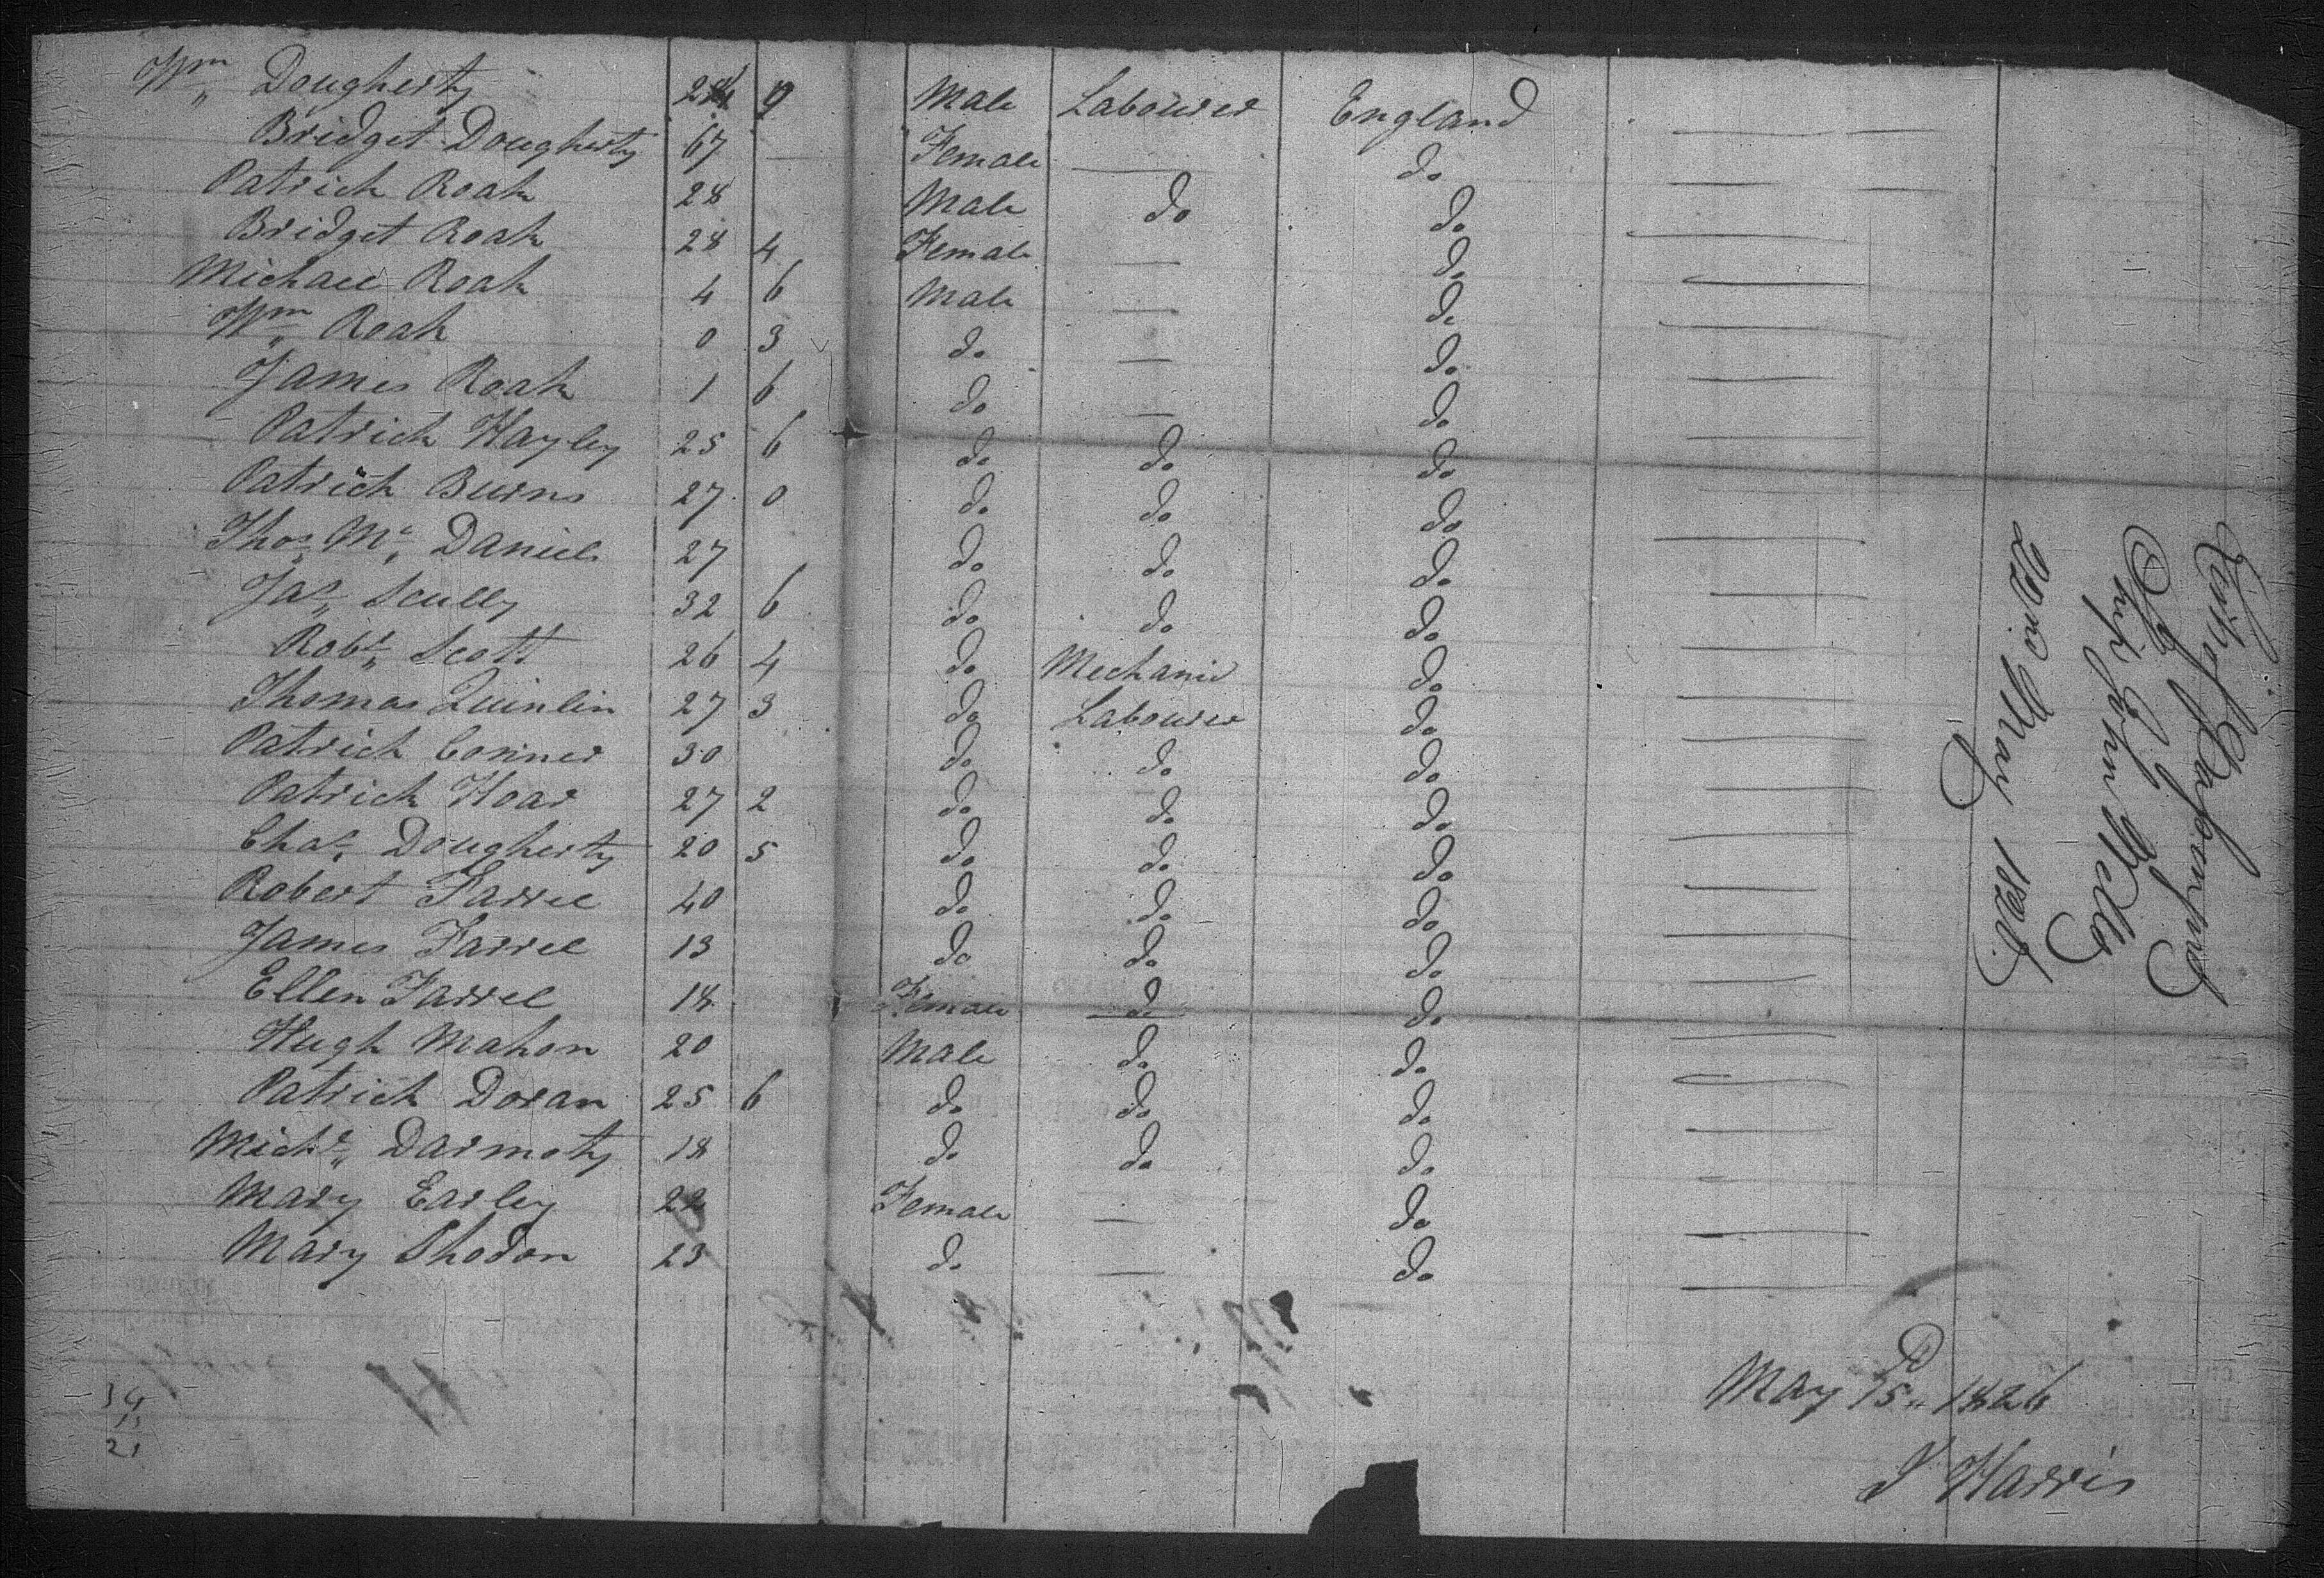 Wm Dougherty 24 9 Male Labourer England
Bridget Dougherty 67 Female — do
Patrick Roak 28 Male do do
Bridget Roak 28 4 Female — do
Michael Roak 4 6 Male — do
Wm Roak 0 3 do — do
James Roak 1 6 do — do
Patrick Hayley 25 6 do do do
Patrick Burns 27 0 do do do
Thos Mc Daniel 27 do do do
Jas Scully 32 6 do do do
Robt Scott 26 4 do Mechanic do
Thomas Quinlin 27 3 do Labourer do
Patrick Conner 30 do do do
Patrick Hoar 27 2 do do do
Chas Dougherty 20 5 do do do
Robert Farrel 40 do do do
James Farrel 13 do do do
Ellen Farrel 18 Female do do
Hugh Mahon 20 Male do do
Patrick Doran 25 6 do do do
Michl Darmoty 18 do do do
Mary Earley 22 Female — do
Mary Shodon 23 do — do
34
13
21
May 1826
J Harris
List of Passengers
Ship John Wells
22nd May 1826